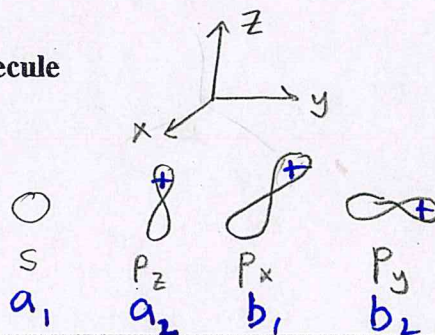 ecule
z
y
x
+ + +
s Pz Px Py
a1 a2 b1 b2